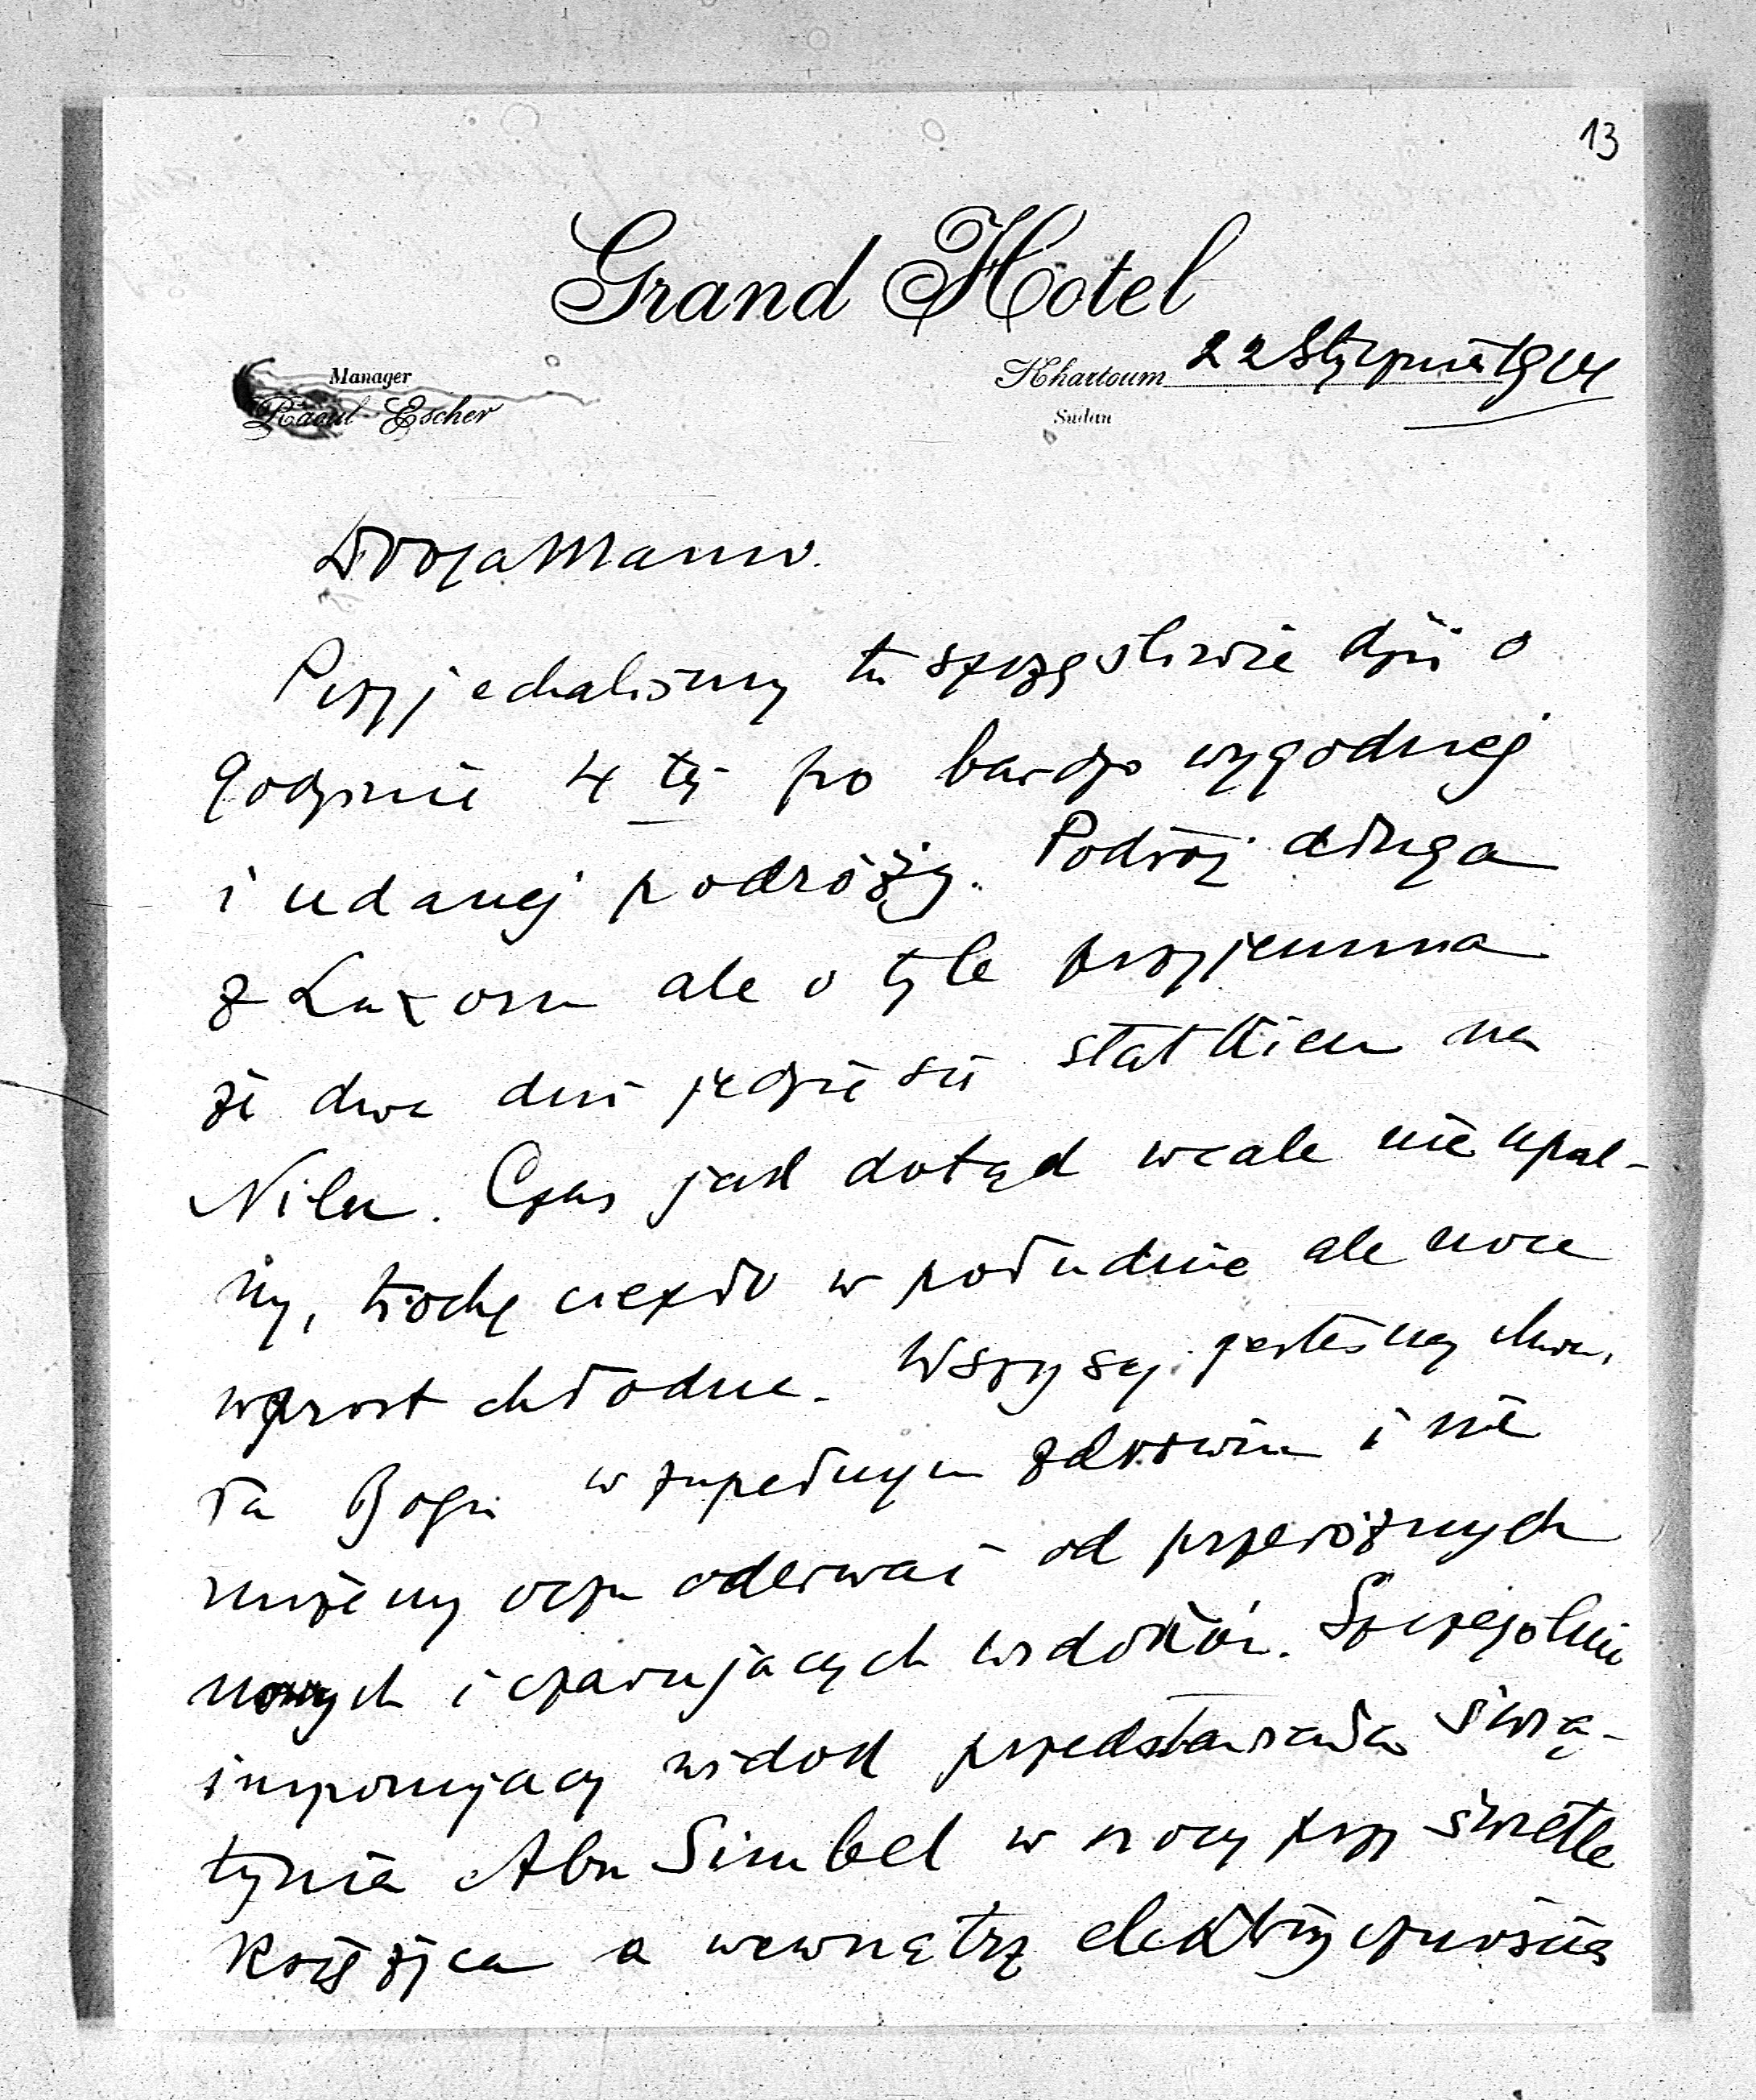 13
Grand Hotel
Manager
Raoul Escher
Khartoum 22 Stycznia 1914
Sudan
Droga Maniu.
Przyjechaliśmy tu szczęśliwie dziś o
godzinie 4 tej po bardzo wygodnej
i udanej podróży. Podróż długa
z Luxoru ale o tyle przyjemna
że dwa dni jedzie się statkiem na
Nilu. Czas jak dotąd wcale nie upal-
ny, trochę ciepło w południe ale noce
wprost chłodne. Wszyscy jesteśmy chwa-
ła Bogu w zupełnym zdrowiu i nie
możemy oczu oderwać od przeróżnych
nowych i czarujących widoków. Szczególnie
imponujący widok przedstawiała świą-
tynia Abu Simbel w nocy przy świetle
księżyca a wewnątrz elektrycznością